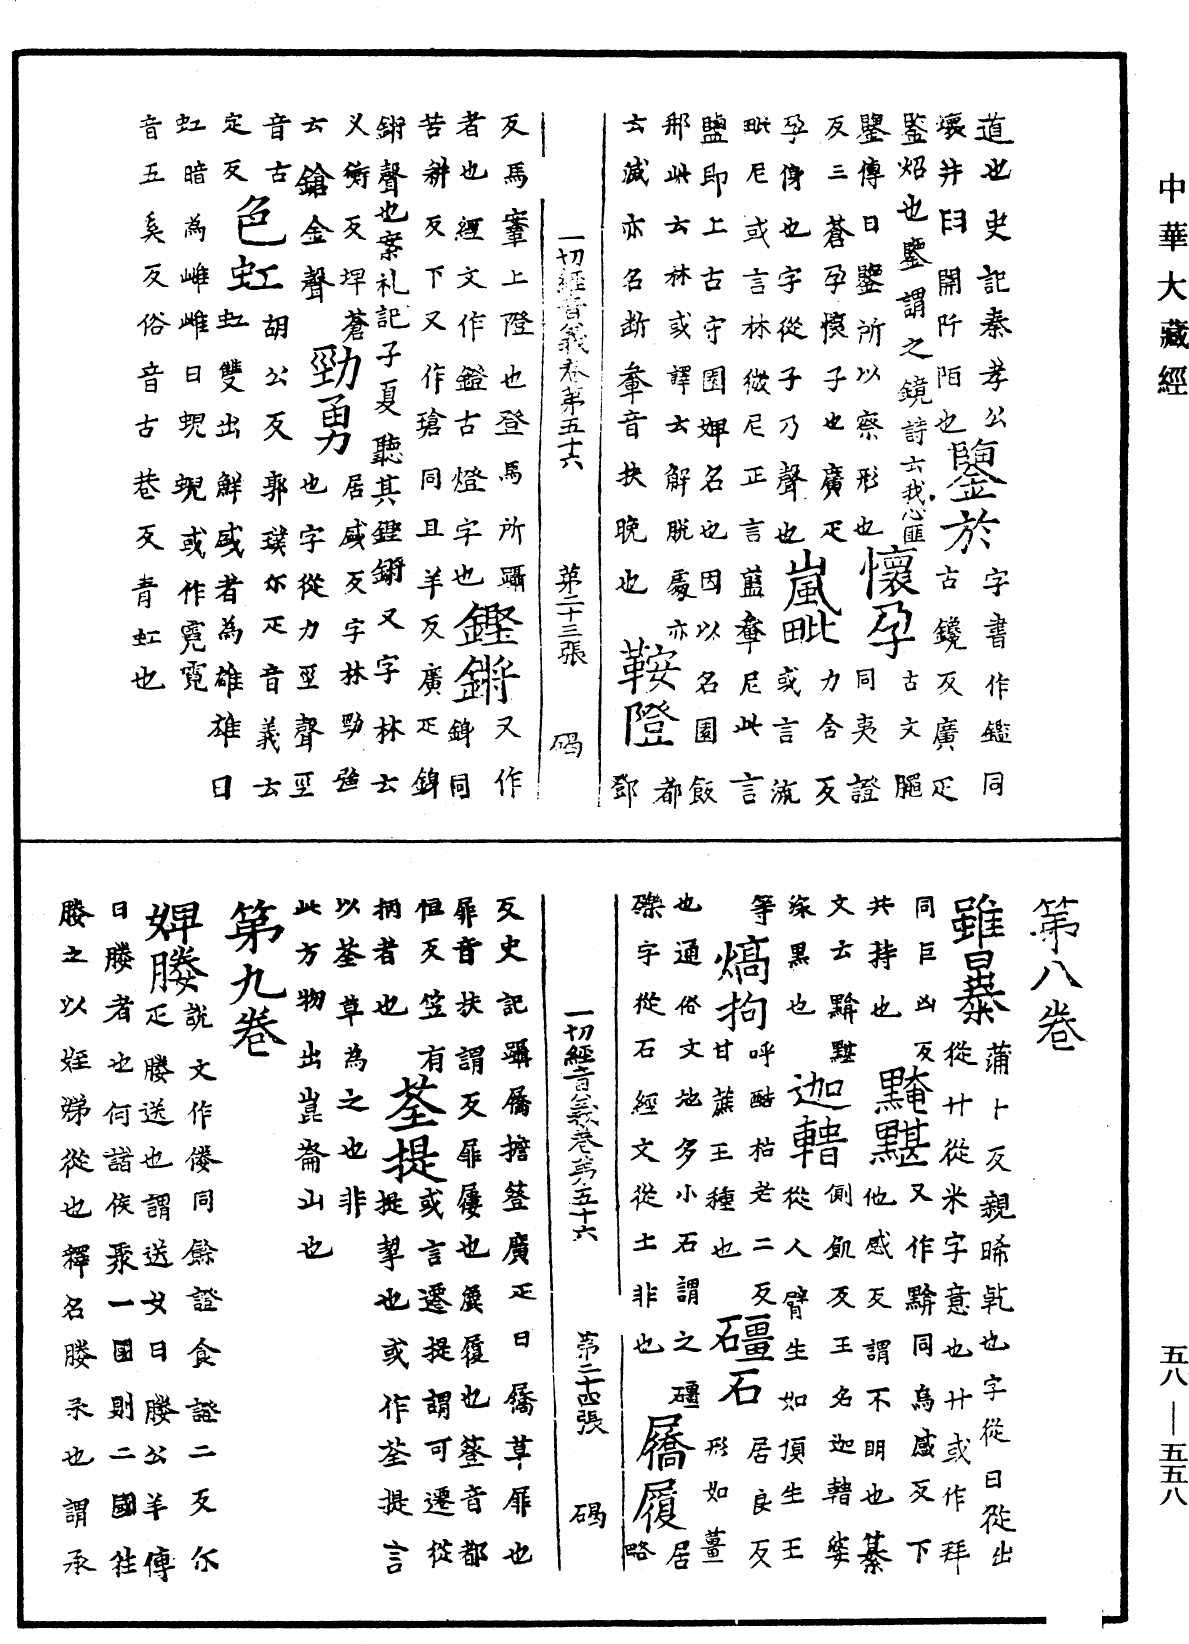 中華大藏經
道也史記秦孝公
壞井田開阡陌也
鑒於
字書作鑑同古鑊反廣疋
鍳炤也鑒謂之鏡詩云我心匪
鑒傳曰鑒所以察形也
懷孕
古文𦜗同夷證
反三蒼孕懷子也廣疋
孕㑗也字從子乃聲也
嵐毗
力含反或言流
毗尼或言林微尼正言藍鞞尼此言
鹽即上古守園婢名也因以名園飯
那此云林或譯云解脫處亦
云滅亦名断鞞音扶晚也
鞍隥
都鄧
反馬鞌上隥也登馬所躡
者也經文作鐙古燈字也
鏗鏘
又作銵同
苦耕反下又作瑲同且羊反廣疋銵
鏘聲也案礼記子夏聽其鏗鏘又字林云
义衡反埩蒼
云鎗金聲
勁勇
居盛反字林勁強
也字從力巠聲巠
音古
定反
色虹
胡公反郭璞尒疋音義云
虹雙出鮮盛者為雄雄曰
虹暗為雌雌曰蜺蜺或作霓霓
音五奚反俗音古巷反青虹也
一切經音義卷第五十六
第二十三張
碣
第八卷
雖暴
蒲卜反親晞乹也字從日從出
從廾從米字意也廾或作拜
同巨凶反
共持也
黤黮
又作黭同烏感反下
他感反謂不明也纂
文云黭黮
深黑也
迦𨍏
側飢反王名迦𨍏娑
從人臂生如頂生王
等
熇拘
呼酷枯老二反
甘蔗王種也
礓石
居良反
形如薑
也通俗文地多小石謂之礓
礫字從石經文從土非也
屩履
居略
反史記躡屩擔簦廣疋曰屩草屝也
屝音扶謂反屝屨也屐履也簦音都
恒反笠有
柄者也
荃提
或言遷提謂可遷從
提挈也或作荃提言
以荃草為之也非
此方物出崑崙山也
第九卷
婢媵
說文作㑞同餘證食證二反尒
疋媵送也謂送女曰媵公羊傳
曰媵者也何諸侯娶一國則二國往
媵之以姪娣從也釋名媵承也謂承
一切經音義卷第五十六
第二十四張
碣
五八—五五八